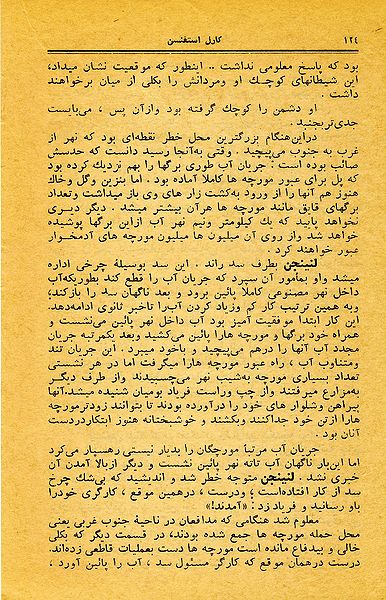 ۱۲۴ کارل استفنسن
بود که پاسخ معلومی نداشت .. اینطور که موقعیت نشان میداد،
این شیطانهای کوچک او ومردانش را بکلی از میان برخواهند
داشت .
او دشمن را کوچک گرفته بود وازآن پس ، می‌بایست
جدی‌تربجنبد .
دراین‌هنگام بزرگترین محل خطر نقطه‌ای بود که نهر از
غرب به جنوب می‌پیچید . وقتی به‌آنجا رسید دانست که حدسش
صائب بوده است : جریان آب طوری برگها را بهم نزدیک کرده بود
که پل برای عبور مورچه ها کاملا آماده بود . اما بنزین وگل وخاک
هنوز هم آنها را از ورود به‌کشت زار های وی باز میداشت وتعداد
برگهای قایق مانند مورچه ها هرآن بیشتر میشد . دیگر دیری
نخواهد پایید که یک کیلومتر ونیم نهر آب ازاین برگها پوشیده
خواهد شد واز روی آن میلیون ها میلیون مورچه های آدمخوار
عبور خواهند کرد .
لنینجن بطرف سد راند . این سد بوسیلهٔ چرخی اداره
میشد واو بمأمور آن سپرد که جریان آب را قطع کند بطوریکه‌آب
داخل نهر مصنوعی کاملا پائین برود و بعد ناگهان سد را بازکند؛
وبه همین ترتیب کار کم وزیاد کردن آب‌را تاخیر ثانوی ادامه‌دهد.
این کار ابتدا موفقیت آمیز بود آب داخل نهر پائین می‌نشست و
همراه خود برگها و مورچه هارا پائین می‌کشید وبعد یکمرتبه جریان
مجدد آب آنها را درهم می‌پیچید و باخود میبرد . این جریان تند
ومتناوب آب ، راه عبور مورچه هارا میگرفت اما در هر نشستی
تعداد بسیاری مورچه به‌شیب نهر می‌چسبیدند واز طرف دیگر
به‌مزارع میرفتند واز چپ وراست فریاد بومیان شنیده میشد.آنها
پیراهن وشلوار های خود را درآورده بودند تا بتوانند زودترمورچه
هارا از تن خود جداکنند وبکشند و خوشبختانه هنوز ابتکاردردست
آنان بود .
جریان آب مرتبا مورچگان را بدیار نیستی رهسپار می‌کرد
اما این‌بار ناگهان آب تاته نهر پائین نشست و دیگر ازبالا آمدن آن
خبری نشد . لنینجن متوجه خطر شد و اندیشید که بی‌شك چرخ
سد از کار افتاده‌است ؛ ودرست ، درهمین موقع ، کارگری خودرا
باو رسانید و فریاد زد : «آمدند!»
معلوم شد هنگامی که مدافعان در ناحیهٔ جنوب غربی یعنی
محل حمله مورچه ها جمع شده بودند، در قسمت دیگر که بکلی
خالی و بیدفاع مانده است مورچه ها دست بعملیات قاطعی زده‌اند.
درست درهمان موقع که کارگر مسئول سد ، آب را پائین آورد ،